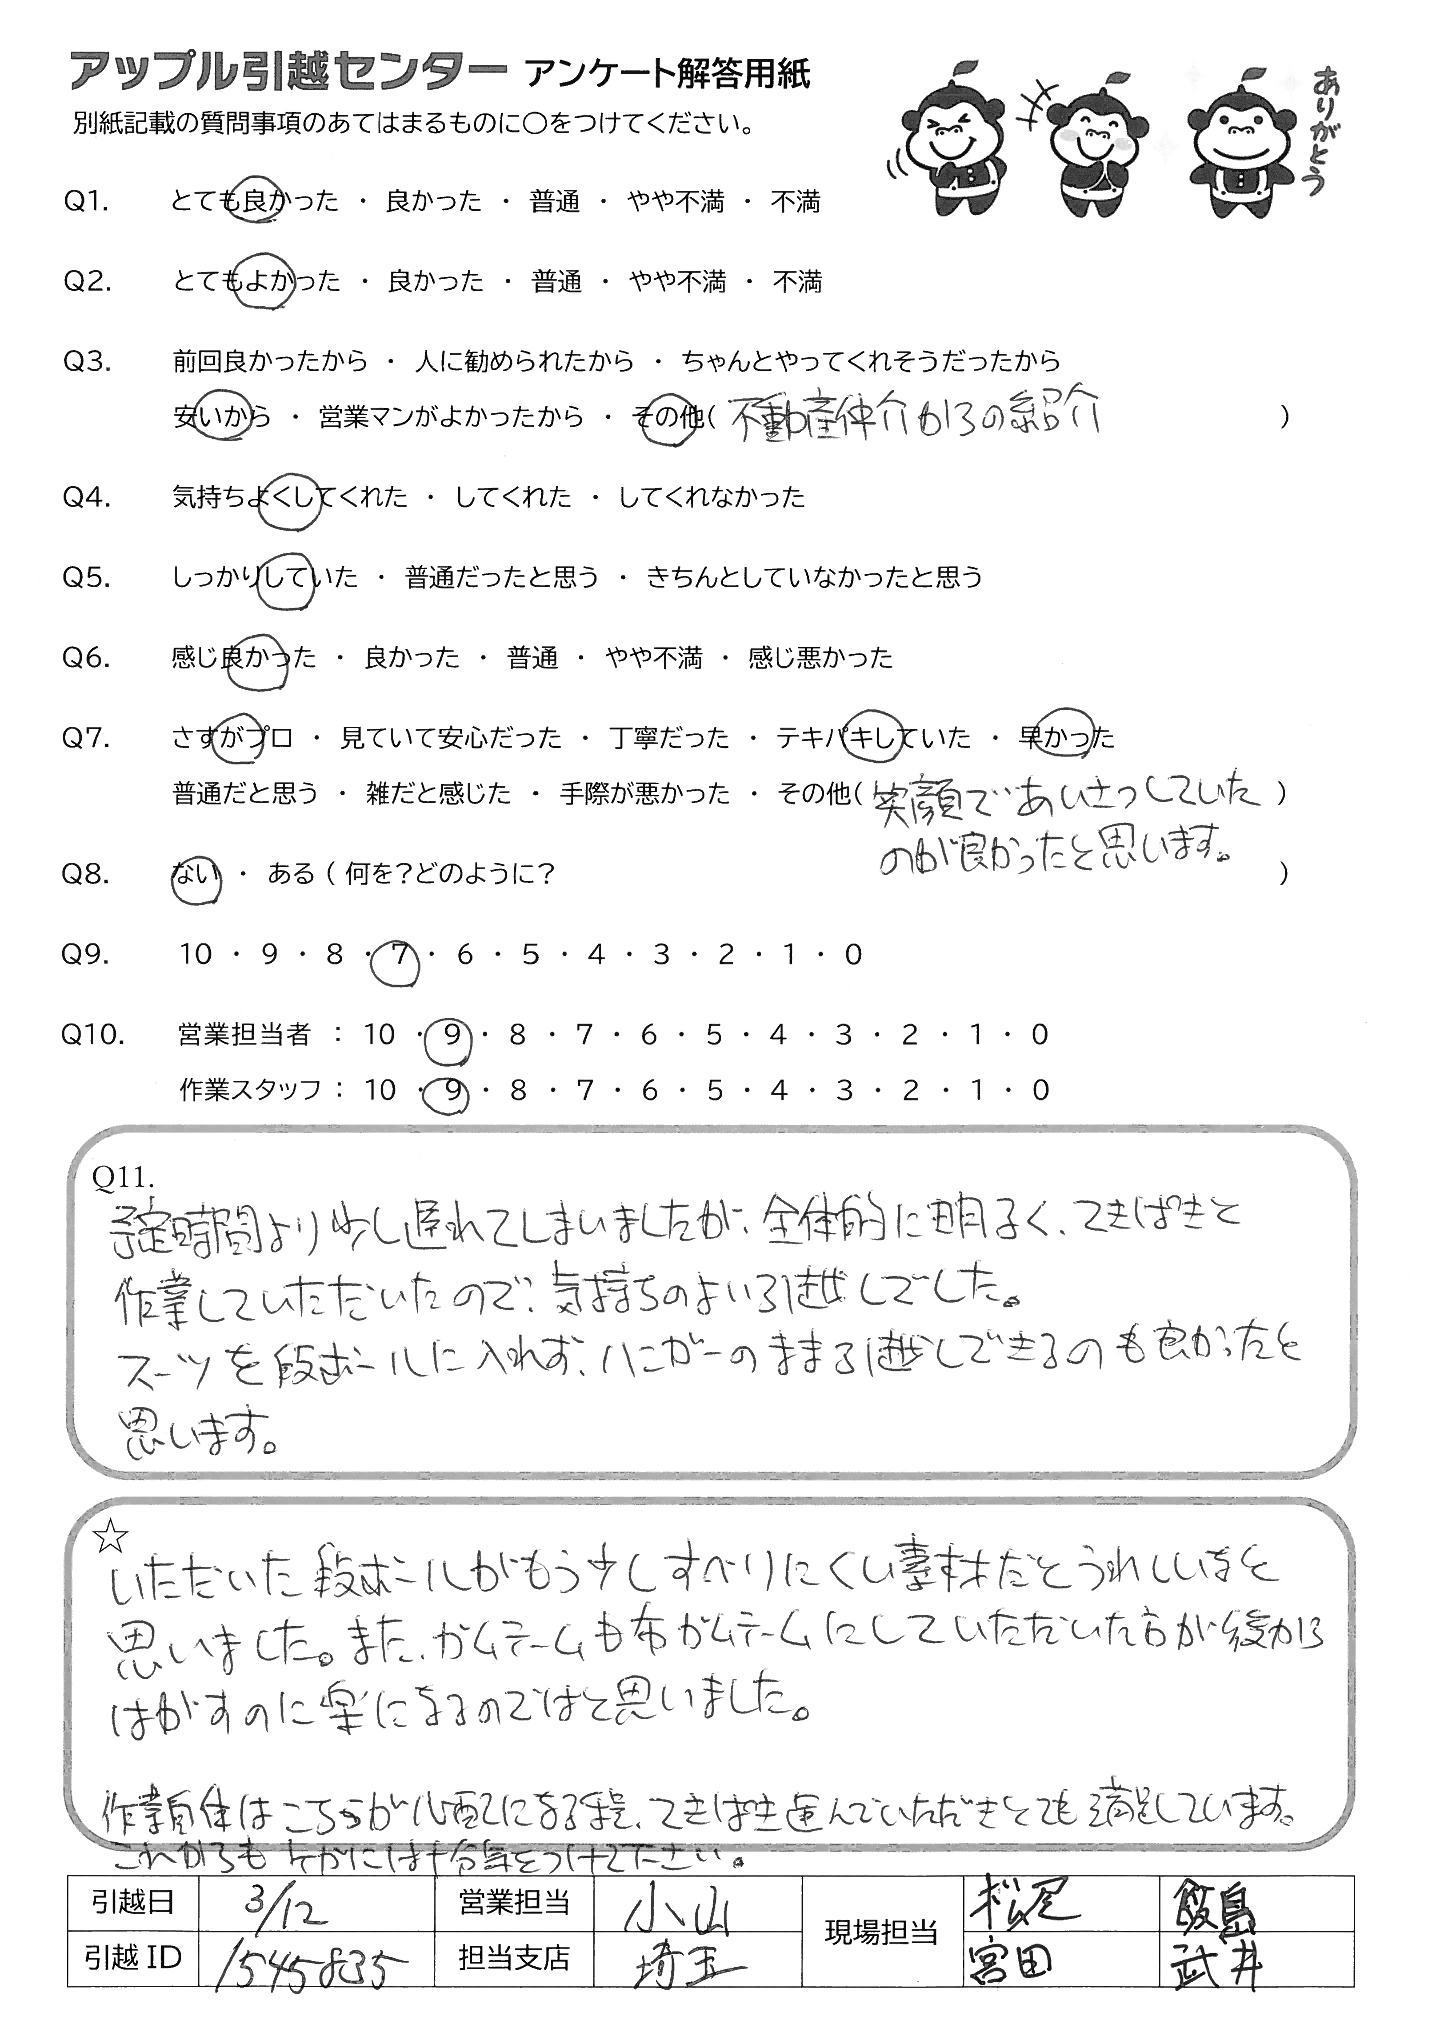 アップル引越センター アンケート解答用紙
別紙記載の質問事項のあてはまるものに○をつけてください。
ありがとう
Q1. とても良かった ・ 良かった ・ 普通 ・ やや不満 ・ 不満
Q2. とてもよかった ・ 良かった ・ 普通 ・ やや不満 ・ 不満
Q3. 前回良かったから ・ 人に勧められたから ・ ちゃんとやってくれそうだったから
安いから ・ 営業マンがよかったから ・ その他( 不動産仲介からの紹介 )
Q4. 気持ちよくしてくれた ・ してくれた ・ してくれなかった
Q5. しっかりしていた ・ 普通だったと思う ・ きちんとしていなかったと思う
Q6. 感じ良かった ・ 良かった ・ 普通 ・ やや不満 ・ 感じ悪かった
Q7. さすがプロ ・ 見ていて安心だった ・ 丁寧だった ・ テキパキしていた ・ 早かった
普通だと思う ・ 雑だと感じた ・ 手際が悪かった ・ その他( 笑顔であいさつしていた )
のが良かったと思います。
Q8. ない ・ ある ( 何を?どのように? )
Q9. 10 ・ 9 ・ 8 ・ 7 ・ 6 ・ 5 ・ 4 ・ 3 ・ 2 ・ 1 ・ 0
Q10. 営業担当者 : 10 ・ 9 ・ 8 ・ 7 ・ 6 ・ 5 ・ 4 ・ 3 ・ 2 ・ 1 ・ 0
作業スタッフ : 10 ・ 9 ・ 8 ・ 7 ・ 6 ・ 5 ・ 4 ・ 3 ・ 2 ・ 1 ・ 0
Q11.
予定時間より少し遅れてしまいましたが、全体的に明るく、てきぱきと
作業していただいたので、気持ちのよい引越しでした。
スーツを段ボールに入れず、ハンガーのまま引越しできるのも良かったと
思います。
☆
いただいた段ボールがもう少しすべりにくい素材だとうれしいなと
思いました。また、ガムテームも布ガムテームにしていただいた方が後から
はがすのに楽になるのではと思いました。
作業自体はこちらが心配になる程、てきぱき進んでいただきとても満足しています。
これからもケガには十分気をつけて下さい。
引越日 3/12 営業担当 小山 現場担当 松尾 飯島
引越 ID 1545835 担当支店 埼玉 宮田 武井